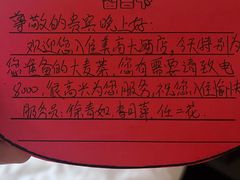 尊敬的贵宾晚上好.
欢迎您入住美高大酒店,今天特别为
您准备的大麦茶,您有需要请致电
8000,很高兴为您服务,祝您入住愉快
服务员:徐香如.李日菊.任二花.